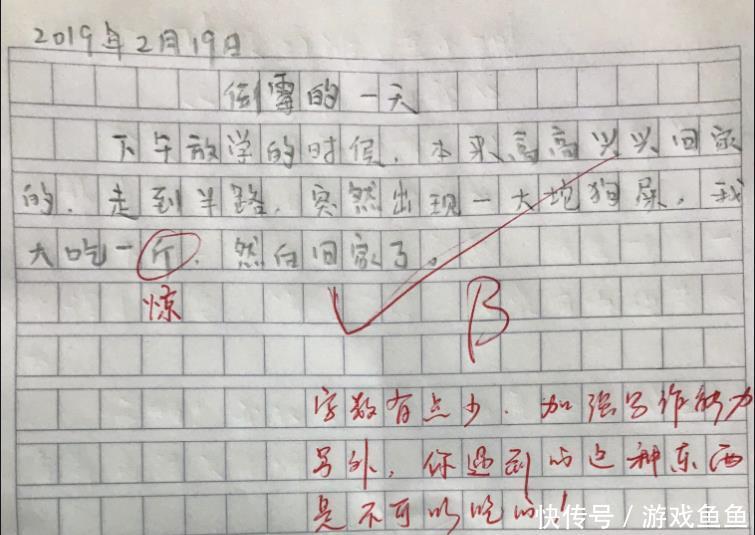 2019年2月19日
倒霉的一天
下午放学的时侯，本来高高兴兴回家
的，走到半路，突然出现一大坨狗屎，我
大吃一斤，然后回家了。
惊
B
字数有点少，加强写作能力
另外，你遇到的这种东西
是不可以吃的！
快传号／游戏鱼鱼